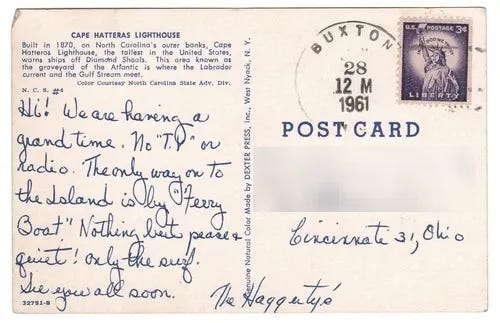 CAPE HATTERAS LIGHTHOUSE
Built in 1870, on North Carolina's outer banks, Cape
Hatteras Lighthouse, the tallest in the United States,
warns ships off Diamond Shoals. This area known as
the graveyard of the Atlantic is where the Labrador
current and the Gulf Stream meet.
Color Courtesy North Carolina State Adv. Div.
N. C. S. #4
Hi! We are having a
grand time. No "T.V" or
radio. The only way on to
the Island is by "Ferry
Boat" Nothing but peace &
quiet! only the surf.
See you all soon.
The Haggerty's
32751-B
Genuine Natural Color Made by DEXTER PRESS, Inc., West Nyack, N. Y.
BUXTON
28
12 M
1961
N
U.S. POSTAGE 3¢
IN GOD WE TRUST
LIBERTY
POST CARD
Cincinnate 31, Ohio